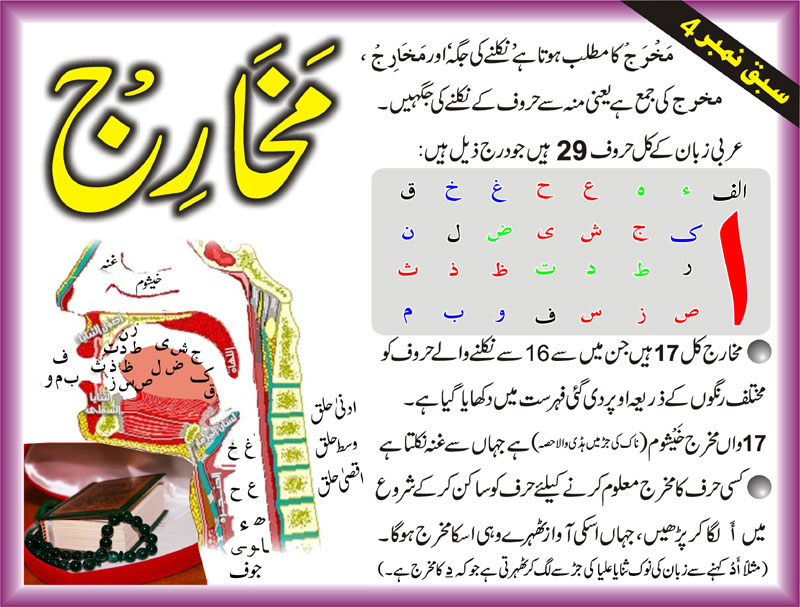 سبق نمبر 4
مَخَارِجُ
مَخْرَجْ کا مطلب ہوتا ہے ’نکلنے کی جگہ‘ اور مَخَارِجُ ،
مخرج کی جمع ہے یعنی منہ سے حروف کے نکلنے کی جگہیں ۔
عربی زبان کے کل حروف 29 ہیں جو درج ذیل ہیں:
الف ء ہ ع ح غ خ ق
ا
ک ج ش ی ض ل ن
ر ط د ت ظ ذ ث
ص ز س ف و ب م
مخارج کل 17 ہیں جن میں سے 16 سے نکلنے والے حروف کو
مختلف رنگوں کے ذریعہ اوپر دی گئی فہرست میں دکھایا گیا ہے۔
17واں مخرج خَیْشوم (ناک کی جڑ میں ہڈی والا حصہ) ہے جہاں سے غنہ نکلتا ہے
کسی حرف کا مخرج معلوم کرنے کیلئے حرف کو ساکن کر کے شروع
میں أَ لگا کر پڑھیں، جہاں اسکی آواز ٹھہرے وہی اسکا مخرج ہوگا۔
(مثلاً أَدْ کہنے سے زبان کی نوک ثنایا علیا کی جڑ سے لگ کر ٹھہرتی ہے جو کہ دِ کا مخرج ہے۔)
غنہ
خیشوم
اللهاة
ن ر
ط د ت
ظ ذ ث
ص س ز
ج ش ی
ض ل
ک
ق
ف
ب م و
الثنايا السفلى
ادنیٰ حلق
وسط حلق
اقصیٰ حلق
غ خ
ع ح
ء ھ
ا و ی
جوف